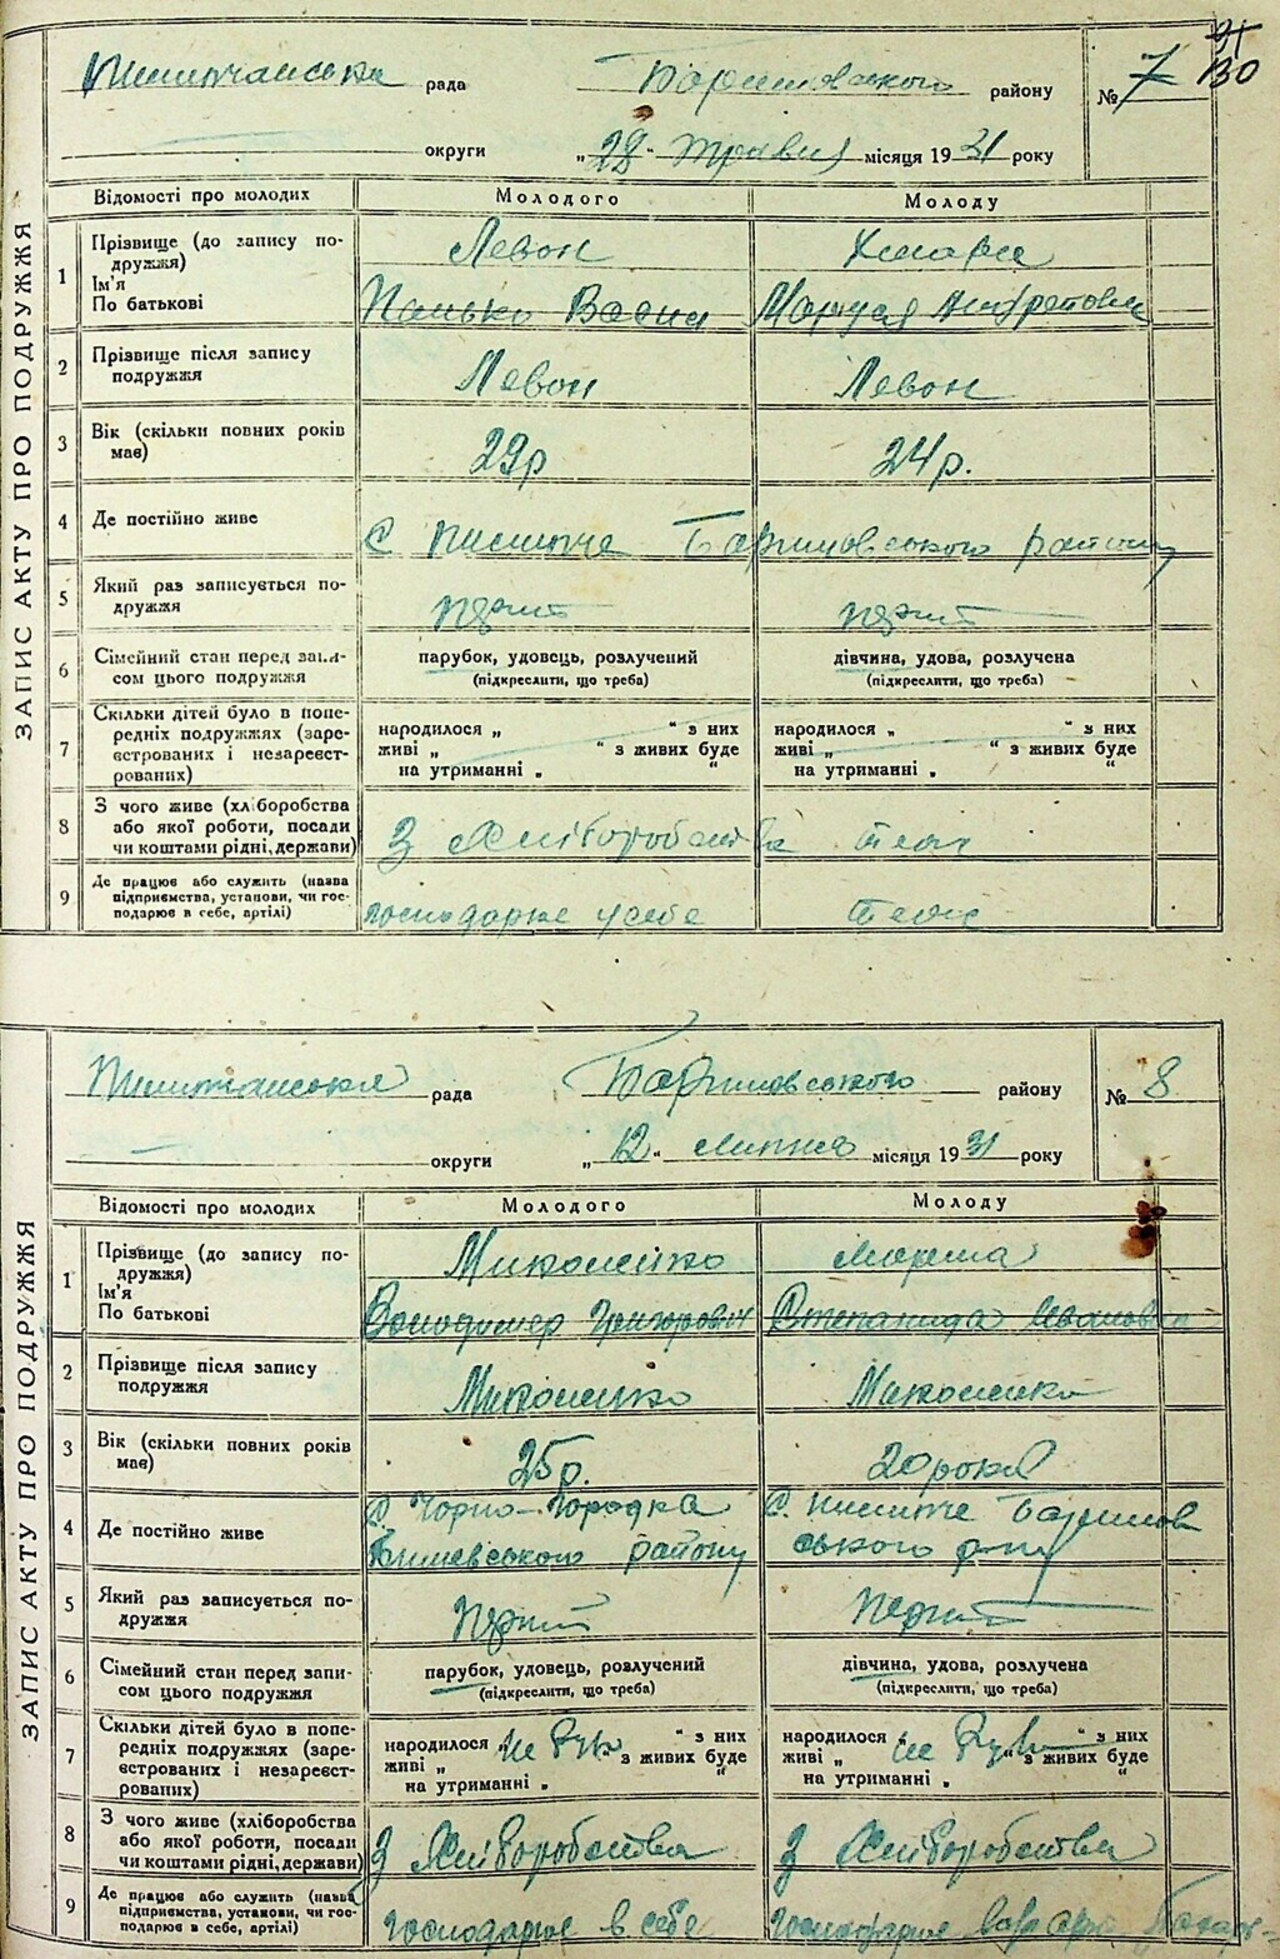 91
130
рада Баришовського району № 7
округи „28“ травня місяця 1931 року
ЗАПИС АКТУ ПРО ПОДРУЖЖЯ
Відомості про молодих Молодого Молоду
1 Прізвище (до запису по-
дружжя) Левон Хмара
Ім'я
По батькові Панько Васил Маруся
2 Прізвище після запису
подружжя Левон Левон
3 Вік (скільки повних років
має) 29р 24р.
4 Де постійно живе С Пилипче Баришовського району
5 Який раз записується по-
дружжя перший перший
6 Сімейний стан перед запи-
сом цього подружжя парубок, удовець, розлучений дівчина, удова, розлучена
(підкреслити, що треба) (підкреслити, що треба)
7 Скільки дітей було в попе-
редніх подружжях (заре-
єстрованих і незареєст-
рованих) народилося „ “ з них народилося „ “ з них
живі „ “ з живих буде живі „ “ з живих буде
на утриманні „ “ на утриманні „ “
8 З чого живе (хліборобства
або якої роботи, посади
чи коштами рідні, держави) З Хліборобства теж
9 Де працює або служить (назва
підприємства, установи, чи гос-
подарює в себе, артілі) господарює у себе теж
рада Баришовського району № 8
округи „12“ липня місяця 1931 року
ЗАПИС АКТУ ПРО ПОДРУЖЖЯ
Відомості про молодих Молодого Молоду
1 Прізвище (до запису по-
дружжя) Миколенко
Ім'я
По батькові Володимер Григорович Степанида Іванов
2 Прізвище після запису
подружжя Миколенко Миколенко
3 Вік (скільки повних років
має) 25р. 20 років
4 Де постійно живе С. Чорно-Городка С. Пилипче Баришов
Бишевського району ського р-ну
5 Який раз записується по-
дружжя перший перший
6 Сімейний стан перед запи-
сом цього подружжя парубок, удовець, розлучений дівчина, удова, розлучена
(підкреслити, що треба) (підкреслити, що треба)
7 Скільки дітей було в попе-
редніх подружжях (заре-
єстрованих і незареєст-
рованих) народилося „ не було “ з них народилося „ не було “ з них
живі „ “ з живих буде живі „ “ з живих буде
на утриманні „ “ на утриманні „ “
8 З чого живе (хліборобства
або якої роботи, посади
чи коштами рідні, держави) З Хліборобства З Хліборобства
9 Де працює або служить (назва
підприємства, установи, чи гос-
подарює в себе, артілі) господарює в себе господарює